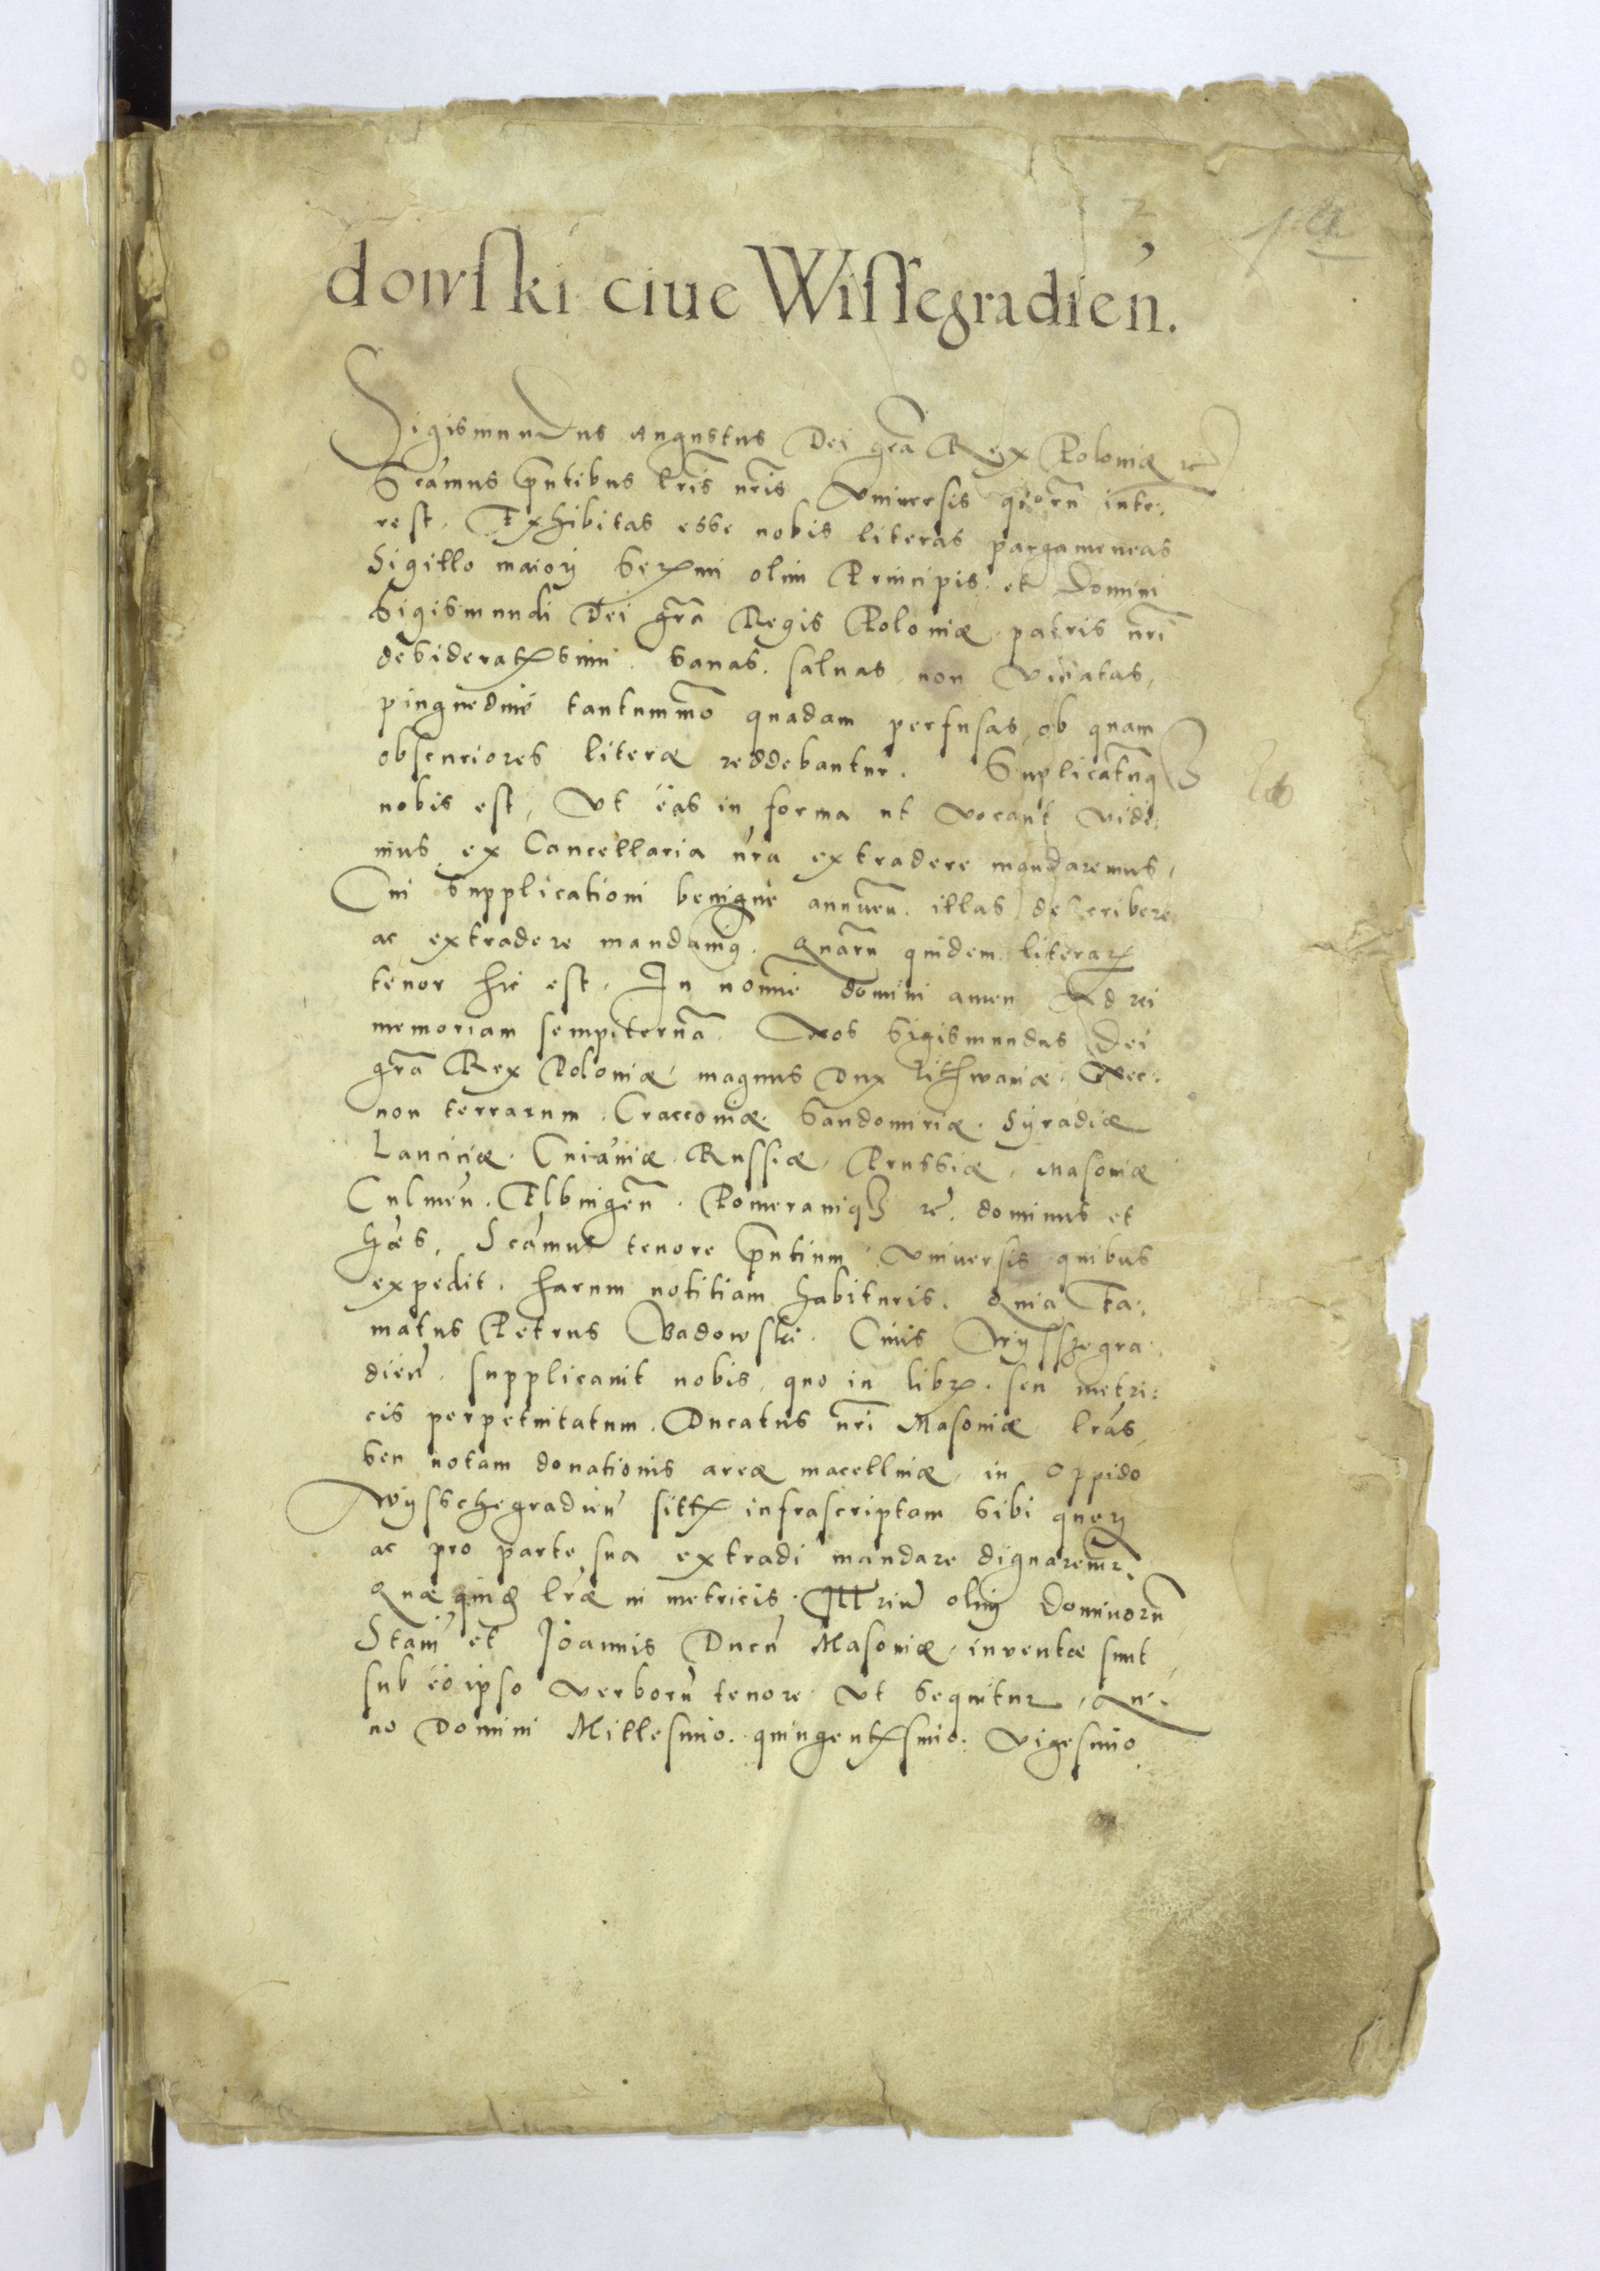 dowski ciue Wissegradień.
Sigismundus augustus Dei gra Rex Poloniæ
Scamus pntibus lris nris Vniuersis quorū inte:
rest. Exhibitas esse nobis literas pargameneas
Sigillo maiorj olim Principis et Domini
Sigismundi Dei gra Regis Poloniæ patris nri
sanas. saluas, non viciatas,
pinguedine tantummo quadam perfusas, ob quam
obscuriores literæ reddebantur. Suplicatumq3
nobis est, Vt eas in forma ut vocant vidi:
mus ex Cancellaria nra extradere mandaremus,
Cui supplicationi benigne annuen. illas describere,
ac extradere mandauimus. Quarū quidem literar
tenor hic est. In nomine domini amen Ad rei
memoriam sempiternā. Nos Sigismundus Dei
gra Rex Poloniæ, magnus Dux Lithwaniæ, Nec:
non terrarum. Craccouiæ. Sandomiriæ. Syradiæ
Lanciciæ. Cuiauiæ. Russiæ, Prussiæ, Masouiæ
Culmeń. Elbingeń. Pomeraniæq3 dominus et
hæs. Scamus tenore pntium Vniuersis quibus
expedit. harum notitiam habituris. Quia Fa:
matus Petrus Badowski. Ciuis Wyssegra:
dień. supplicauit nobis, quo in libr. seu metri:
cis perpetuitatum. Ducatus nri Masouiæ lras
seu notam donationis areæ macelluiæ, in oppido
Wysschegradień infrascriptam sibi querj
ac pro parte sua extradi mandare dignaremr.
Quæ quid lræ in metricis Illriū olim Dominorū
Stani et Joannis Ducū Masouiæ, inventæ sunt
sub eo ipso verborū tenore Vt sequitur, An:
no Domini Millesimo. quingentesimo. Vigesimo